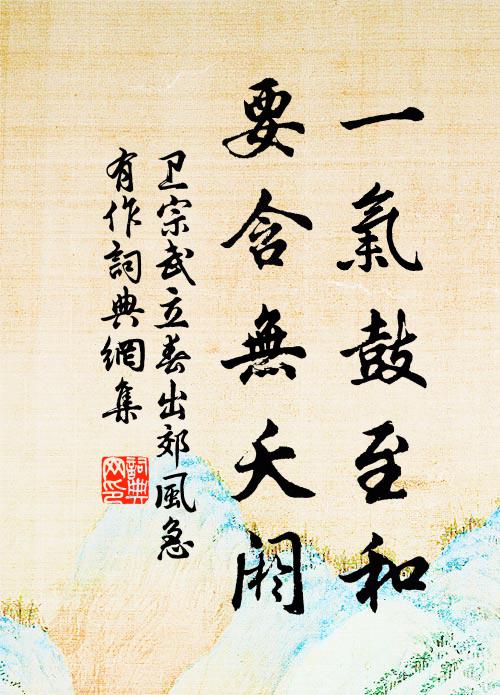 一氣鼓至和
要含無夭阏
卫宗武立春出郊風急
有作詞典網集
詞典
网印